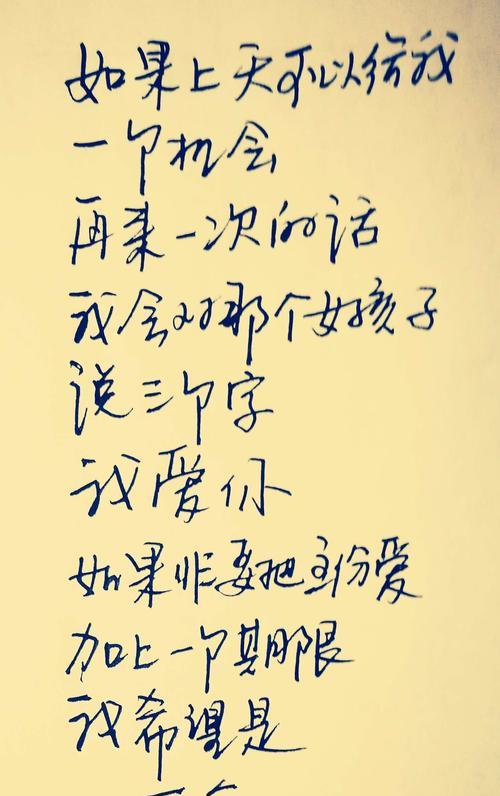 如果上天可以给我
一个机会
再来一次的话
我会对那个女孩子
说三个字
我爱你
如果非要把这份爱
加上一个期限
我希望是